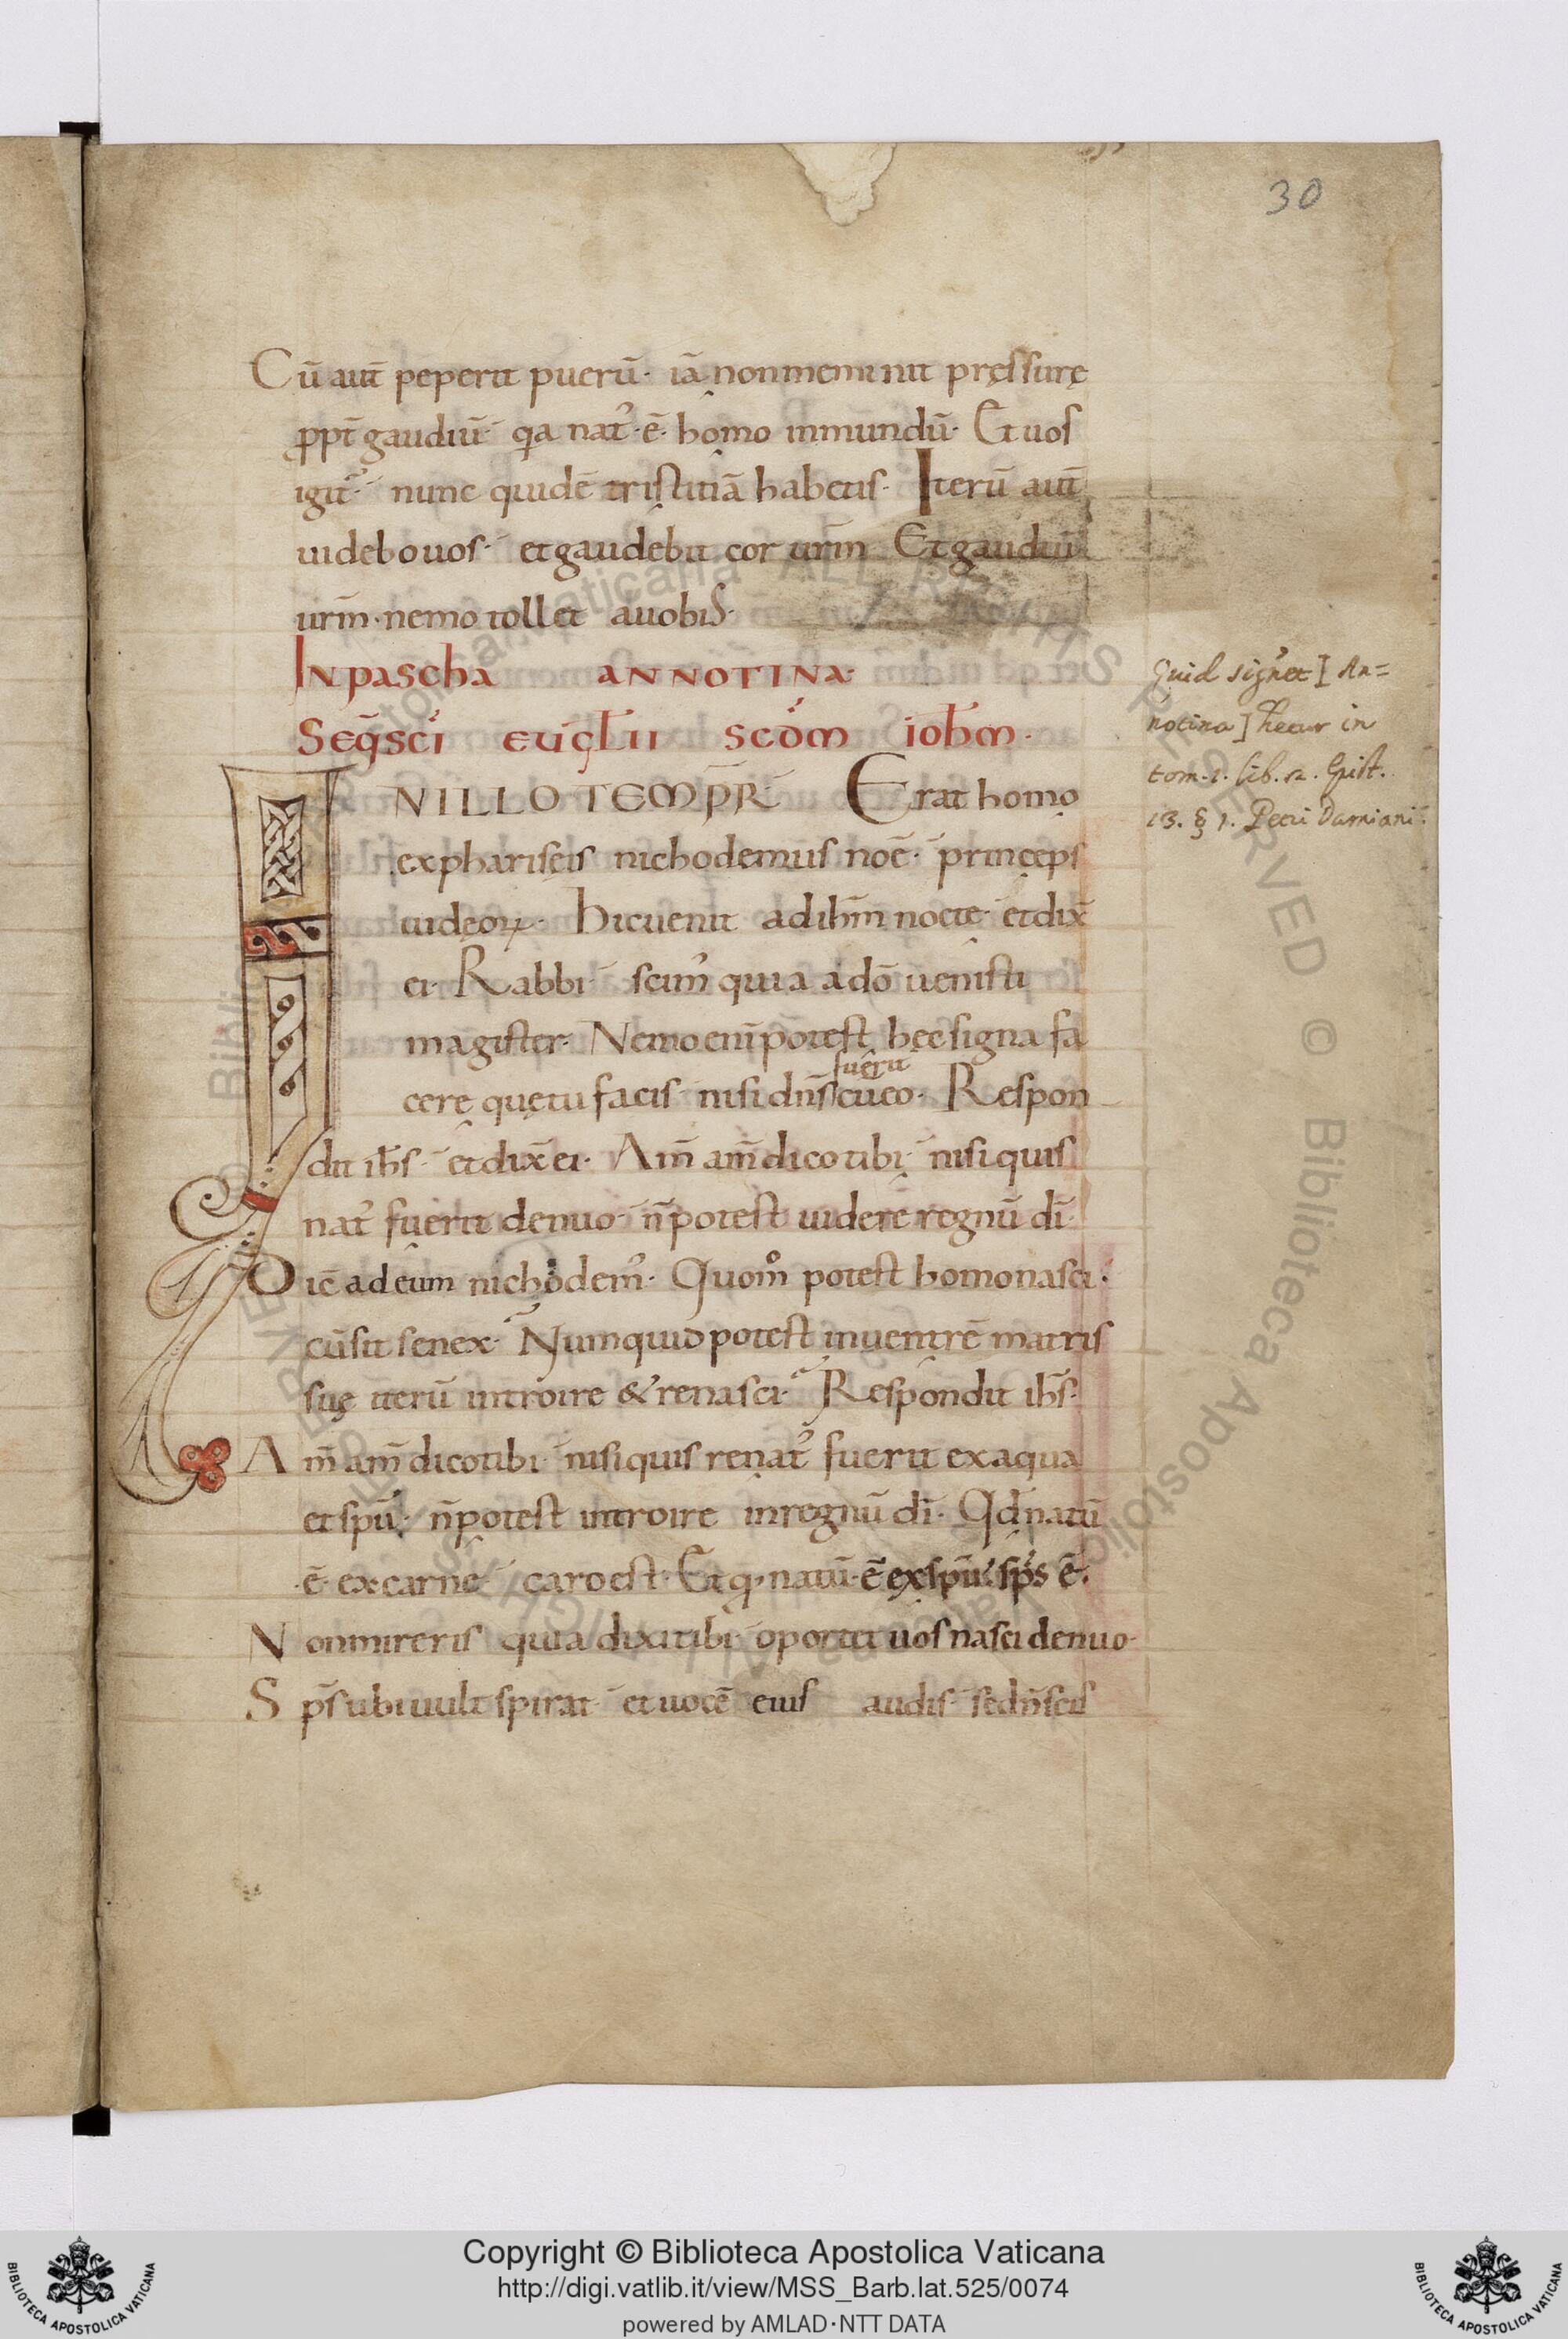 30
Cū aut̄ peperit puerū· iā non meminit pręssurę
ꝓpt̄ gaudiū· qa nat᾽·ē· homo inmundū· Et uos
igit᾽· nunc quidē tristitiā habetis· Iterū aut̄
uidebo uos· et gaudebit cor ur̄m Et gaudiū
ur̄m· nemo tollet auobis·
IN pascha ANNOTINA·
Seq̄ sci euḡlii scdm ioh̄m·
IN ILLO TEMPR̄ Erat homo
ex phariseis nichodemus noē· princeps
iudęoꝝ· Hic uenit ad ih̄m nocte· et dix̄
ei· Rabbi· scim᾽ quia a dō uenisti
magister· Nemo eni potest hęc signa fa
cere quę tu facis· nisi dn̄s cū eo· Respon
fuerit
dit ih̄s· et dix̄ ei· Am̄ am̄ dico tibi· nisi quis
nat᾽ fuerit denuo· n̄ potest uidere regnū dī·
Dic̄ ad eum nichodem᾽· Quom̊ potest homo nasci·
cū sit senex· Numquid potest in uentrē matris
suę iterū introire & renasci· Respondit ih̄s·
Am̄ am̄ dico tibi· nisi quis renat᾽ fuerit ex aqua
et spū· n̄ potest introire in regnū dī· Qd̄ natū
·ē· ex carne· caro est· Et qd natū·ē ex spū· sp̄s ē·
Non mireris quia dixi tibi· oportet uos nasci denuo·
Sp̄s ubi uult spirat· et uocē eius audis· sed n̄ scis
Quid sign᾽et [An=
notina]
in
tom. 1. lib.
Epist.
13. § 1. Petri Damiani.
Copyright © Biblioteca Apostolica Vaticana
http://digi.vatlib.it/view/MSS_Barb.lat.525/0074
powered by AMLAD·NTT DATA
BIBLIOTECA APOSTOLICA VATICANA
BIBLIOTECA APOSTOLICA VATICANA